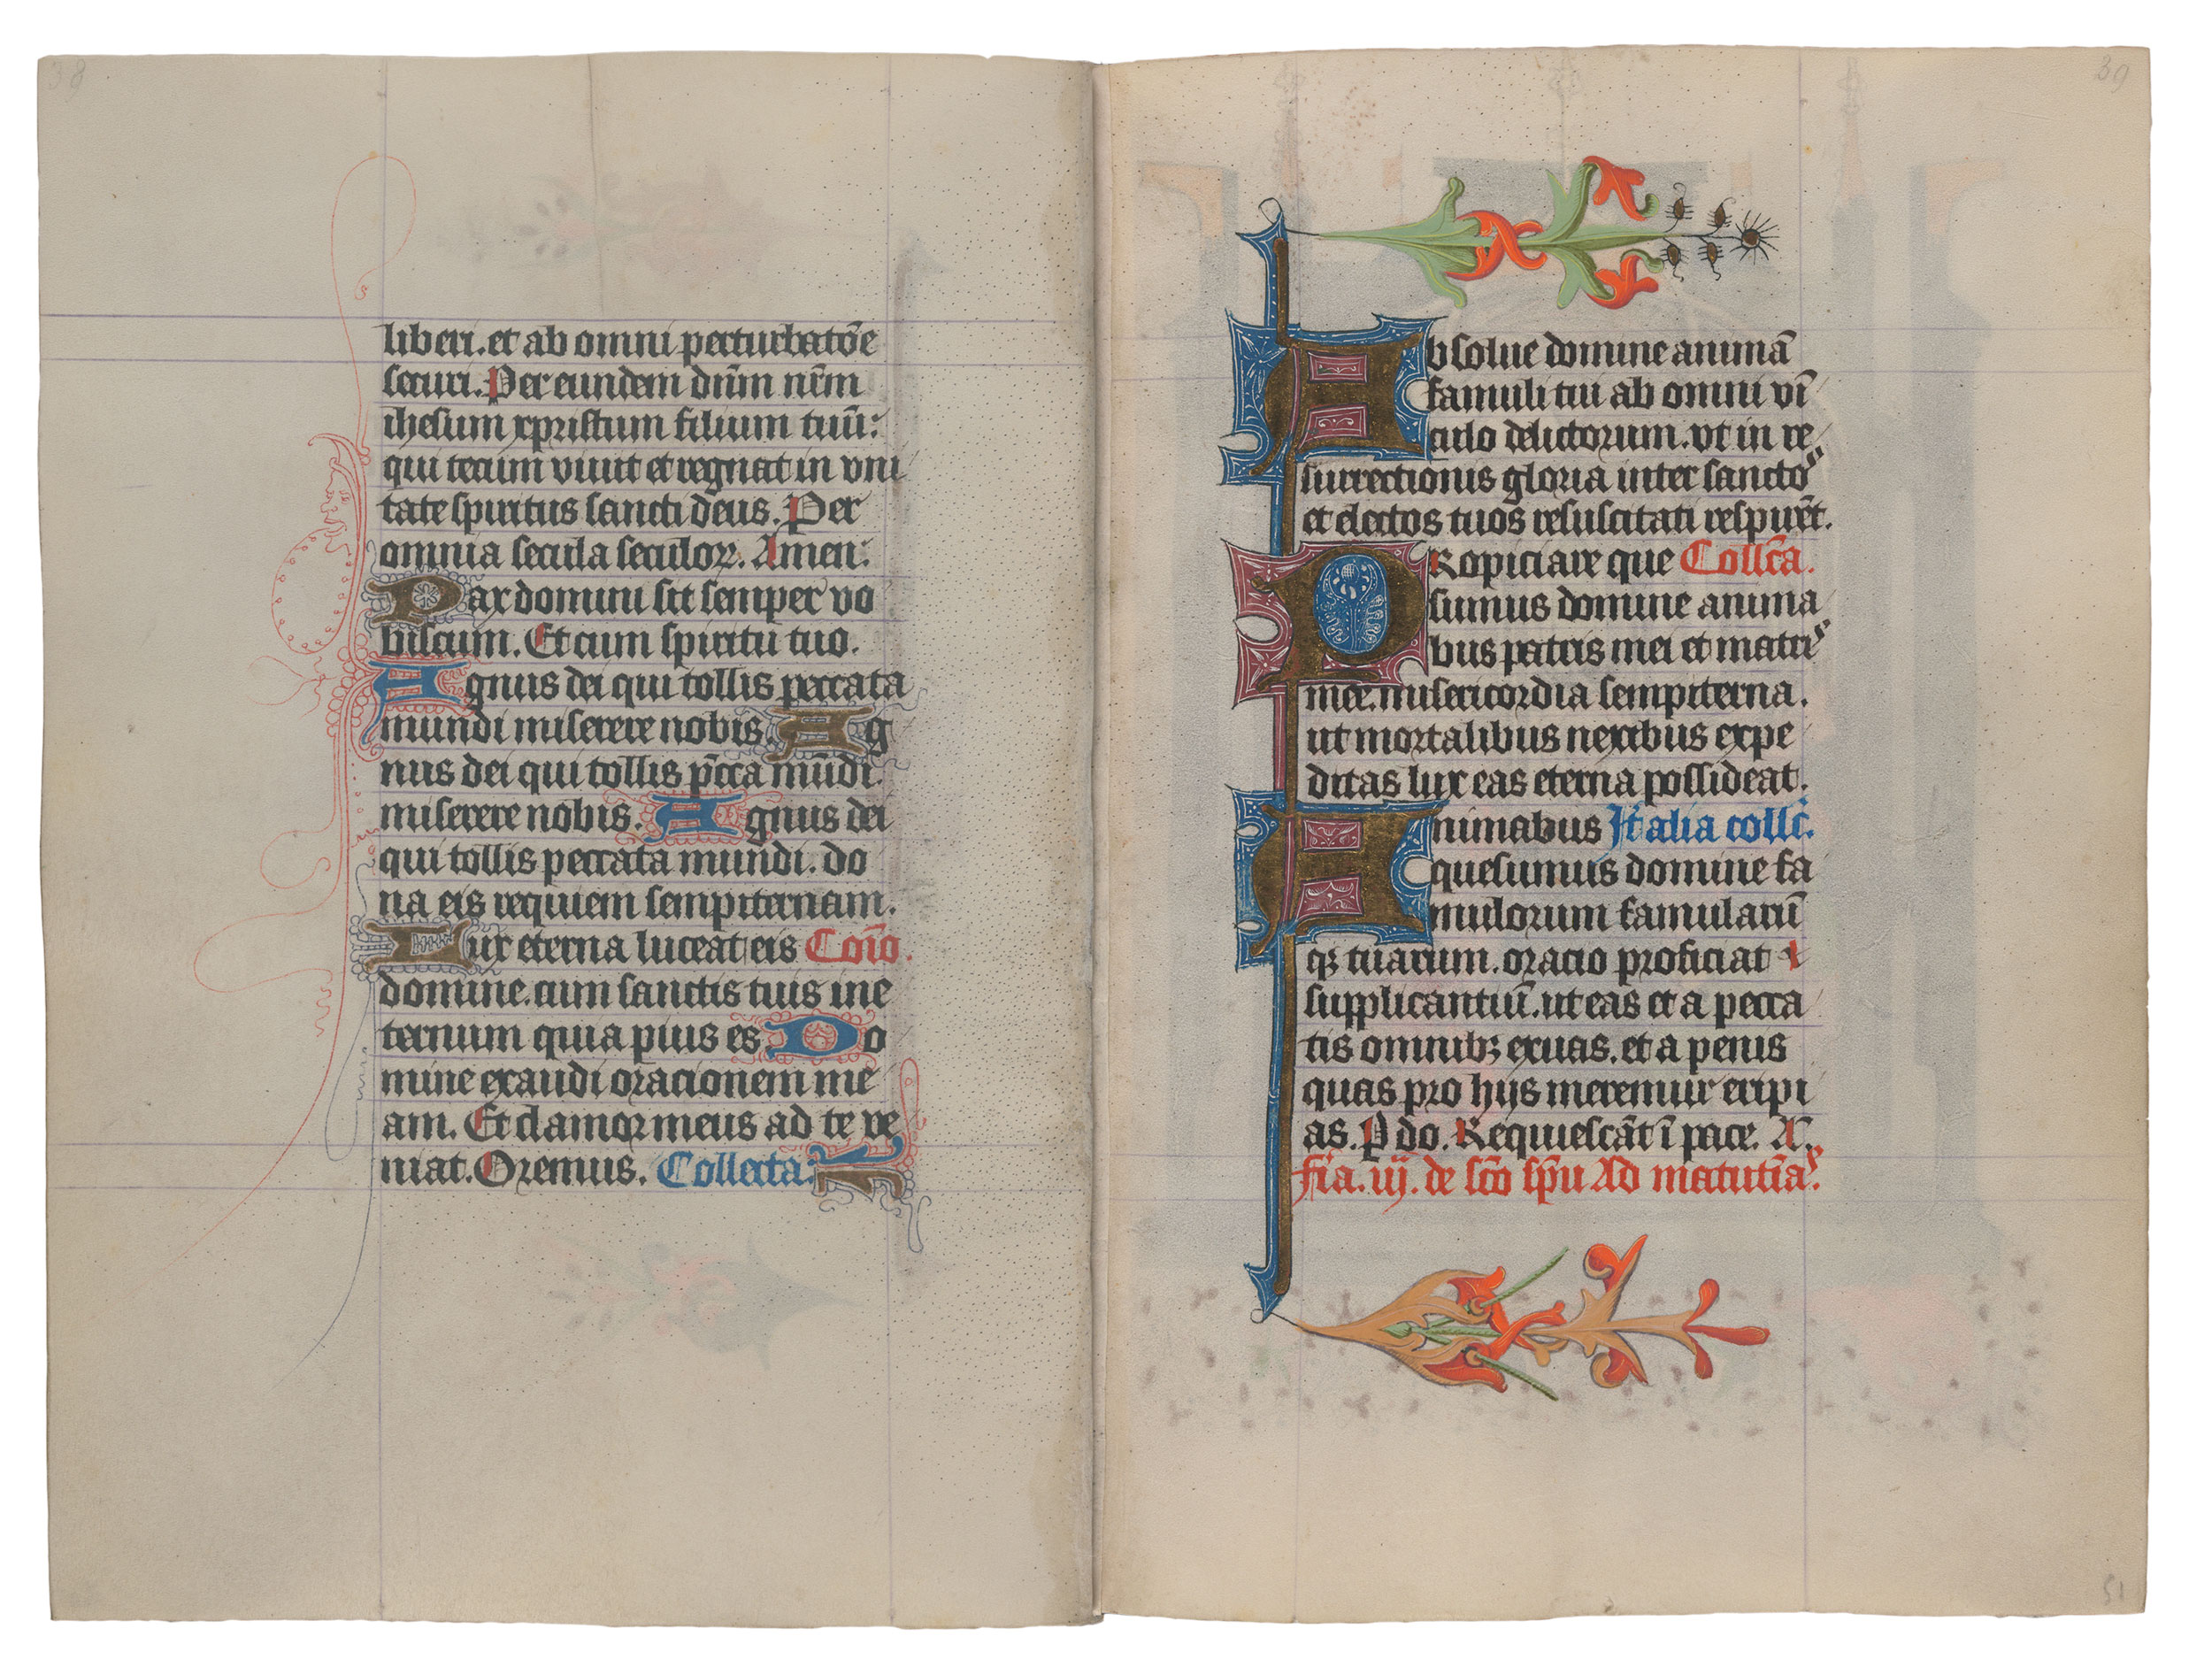 38
liberi. et ab omni perturbatōe
securi. Per eundem dn̄m nr̄m
ihesum xpristum filium tuū:
qui tecum viuit et regnat in vni
tate spiritus sancti deus. Per
omnia secula seculoꝝ. Amen:
Pax domini sit semper vo
biscum. Et cum spiritu tuo.
Agnus dei qui tollis peccata
mundi miserere nobis. Ag
nus dei qui tollis pc̄ca mūdi
miserere nobis. Agnus dei
qui tollis peccata mundi. do
na eis requiem sempiternam.
Lux eterna luceat eis Cōio.
domine. cum sanctis tuis ine
ternum quia pius es. Do
mine exaudi oracionem me
am. Et clamor meus ad te ve
niat. Oremus. Collecta:
39
Absolue domine animā
famuli tui ab omni vī
culo delictorum. vt in re
surrectionis gloria inter sancto
et electos tuos resuscitati respirēt.
PRopiciare que Collc̄a.
sumus domine anima
bus patris mei et matris
mee. misericordia sempiterna.
ut mortalibus nexibus expe
ditas lux eas eterna possideat.
Animabus It alia collc̄.
quesumus domine fa
mulorum famularū
qꝫ tuarum. oracio proficiat
supplicantiū. ut eas et a pecca
tis omnibꝫ exuas. et a penis
quas pro hijs meremur eripi
as. P do. Requiescāt ī pace. A.
fīa. iij. de sc̄o sp̄u Ad matutīas.
51